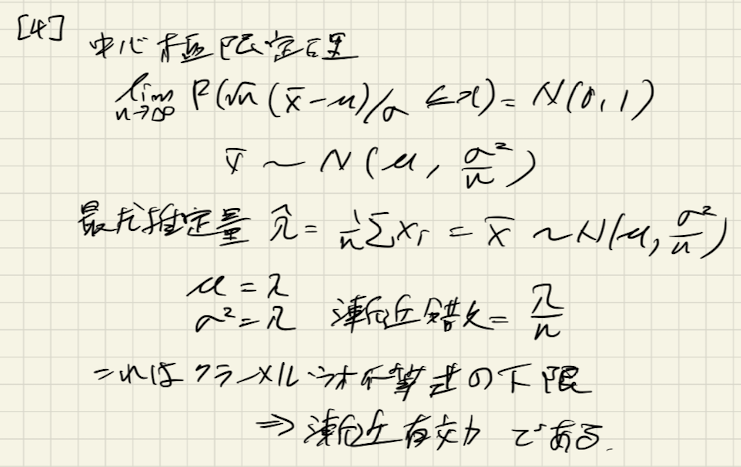 [4] 中心極限定理
lim n→∞ P(√n (x̄-μ)/σ ≤ x) = N(0, 1)
x̄ ~ N(μ, σ²/n)
最尤推定量 λ̂ = 1/n Σxᵢ = x̄ ~ N(μ, σ²/n)
μ = λ
σ² = λ 漸近分散 = λ/n
これはクラーメル・ラオ不等式の下限
⇒ 漸近有効である.